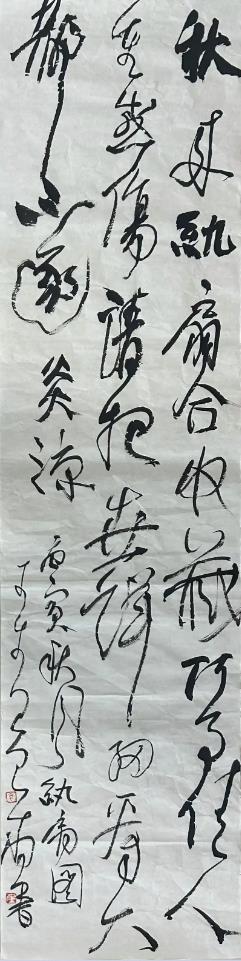 秋来纨扇合收藏何事佳人
重感伤请把世情详细看大
都谁不逐炎凉
唐寅秋风纨扇图